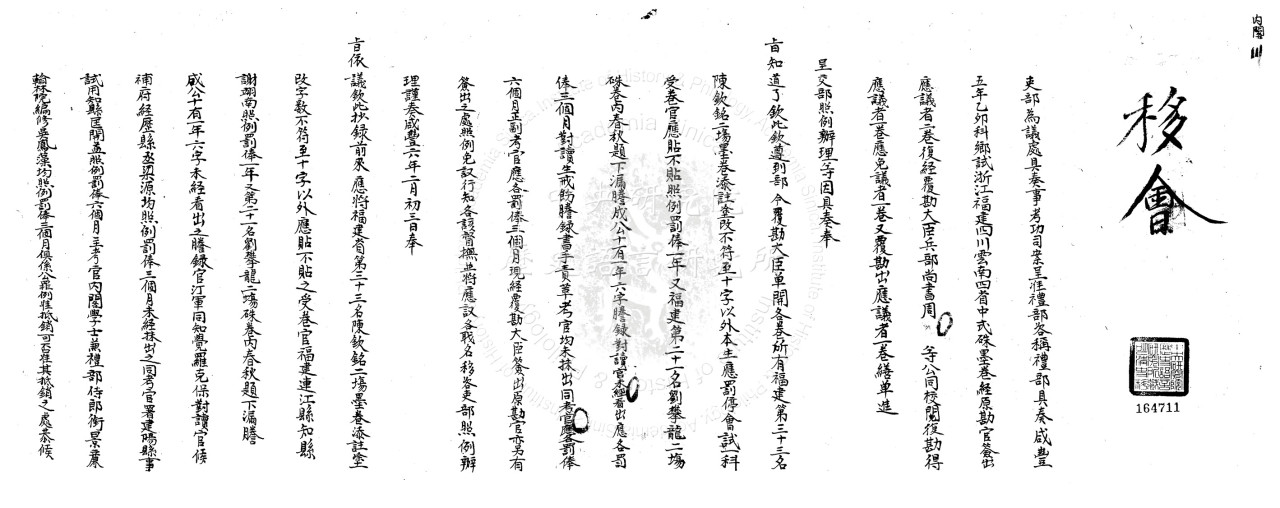 內閣
移會
吏部為議處具奏事考功司案呈准禮部咨稱禮部具奏咸豐
五年乙卯科鄉試浙江福建四川雲南四省中式硃墨卷經原勘官簽出
應議者一卷復經覆勘大臣兵部尚書周 等公同校閱復勘得
應議者一卷應免議者一卷又覆勘出應議者一卷繕單進
呈交部照例辦理等因具奏奉
旨知道了欽此欽遵到部今覆勘大臣單開各卷所有福建第三十三名
陳欽銘二場墨卷添註塗改不符至十字以外本生應罰停會試一科
受卷官應貼不貼照例罰俸一年又福建第二十一名劉攀龍二場
硃卷內春秋題下漏謄成公十有一年六字謄錄對讀官未經看出應各罰
俸三個月對讀生戒飭謄錄書手責革考官均未抹出同考官應各罰俸
六個月正副考官應各罰俸三個月現經覆勘大臣簽出原勘官亦另有
簽出之處照例免議行知各該督撫並將應議各職名移咨吏部照例辦
理謹奏咸豐六年二月初三日奉
旨依議欽此抄錄前來應將福建省第三十三名陳欽銘二場墨卷添註塗
改字數不符至十字以外應貼不貼之受卷官福建連江縣知縣
謝翊南照例罰俸一年又第二十一名劉攀龍二場硃卷內春秋題下漏謄
成公十有一年六字未經看出之謄錄官汀軍同知覺羅克保對讀官候
補府經歷縣丞梁源均照例罰俸三個月未經抹出之同考官署建陽縣事
試用知縣匡開益照例罰俸六個月主考官內閣學士兼禮部侍郎銜景廉
翰林院編修吳鳳藻均照例罰俸三個月俱係公罪例准抵銷可否准其抵銷之處恭候
164711
中央研究院
歷史語言研究所